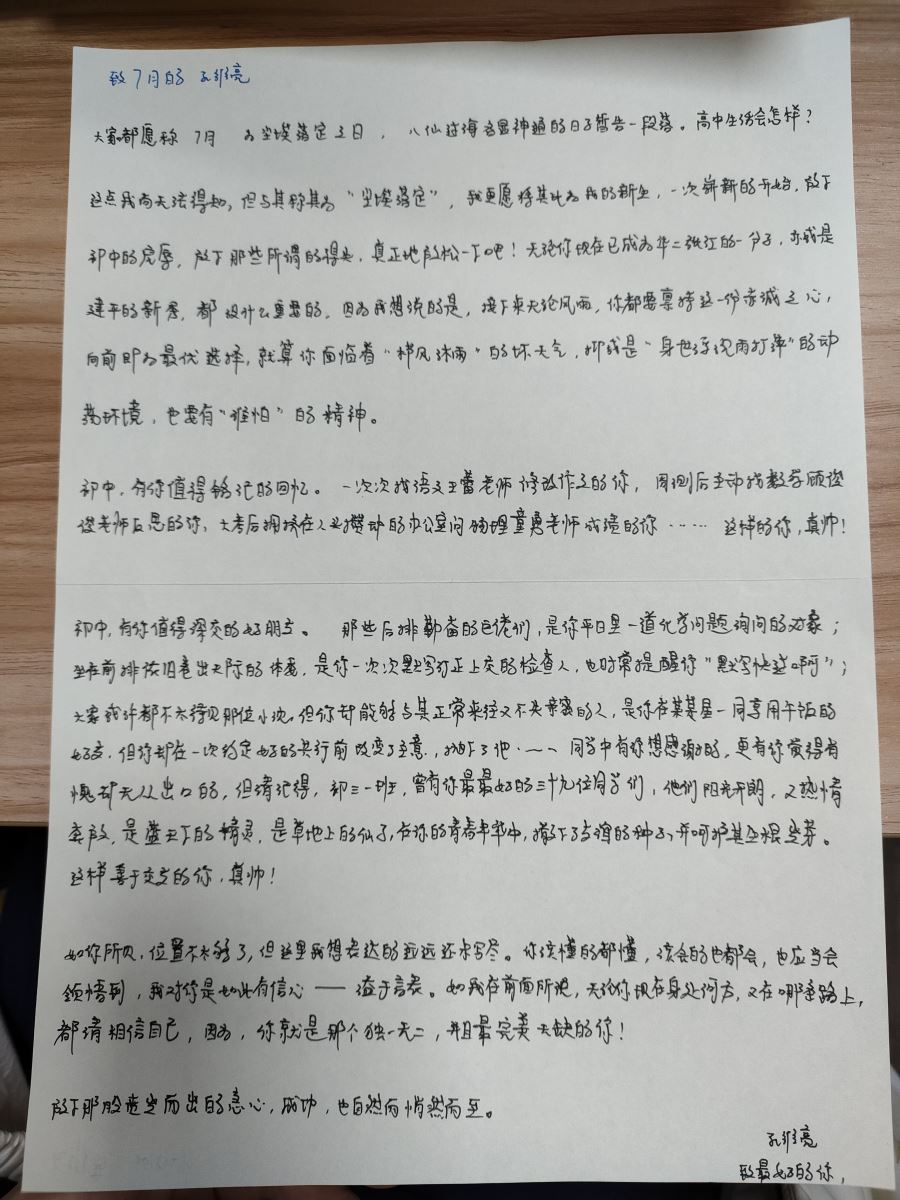 致7月的 孔维亮
大家都愿称 7月 为尘埃落定之日，八仙过海各显神通的日子暂告一段落。高中生活会怎样？
这点我尚无法得知，但与其称其为“尘埃落定”，我更愿将其比为我的新生，一次崭新的开始，放下
初中的屈辱，放下那些所谓的得失，真正地放松一下吧！无论你现在已成为华二张江的一分子，亦或是
建平的新秀，都没什么重要的，因为我想说的是，接下来无论风雨，你都要禀持这一份赤诚之心，
向前即为最优选择，就算你面临着“栉风沐雨”的坏天气，抑或是“身世浮沉雨打萍”的动
荡环境，也要有“谁怕”的精神。
初中，有你值得铭记的回忆。 一次次找语文王蕾老师修改作文的你，周测后主动找数学顾俊
俊老师反思的你，大考后拥挤在人头攒动的办公室问物理童勇老师成绩的你…… 这样的你，真帅！
初中，有你值得深交的好朋友。 那些后排勤奋的巨佬们，是你平日里一道化学问题询问的对象；
坐在前排依旧卷出天际的体委，是你一次次默写订正上交的检查人，也时常提醒你“默写快些啊”；
大家或许都不太待见那位小沈，但你却能够与其正常来往又不失亲密的人，是你在某某星一同享用午饭的
好友，但你却在一次约定好的共行前改变了主意，抛下了他…… 同学中有你想感谢的，更有你觉得有
愧却无从出口的，但请记得，初三一班，曾有你最最好的三十九位同学们，他们阳光开朗，又热情
奔放，是蓝天下的精灵，是草地上的仙子，在你的青春年华中，撒下了友谊的种子，并呵护其生根发芽。
这样善于交友的你，真帅！
如你所见，位置不太够了，但这里我想表达的远远还未写尽。你该懂的都懂，该会的也都会，也应当会
领悟到，我对你是如此有信心——溢于言表。如我在前面所说，无论你现在身处何方，又在哪条路上，
都请相信自己，因为，你就是那个独一无二，并且最完美无缺的你！
放下那股迸发而出的急心，成功，也自然而悄然而至。
孔维亮
致最好的你，